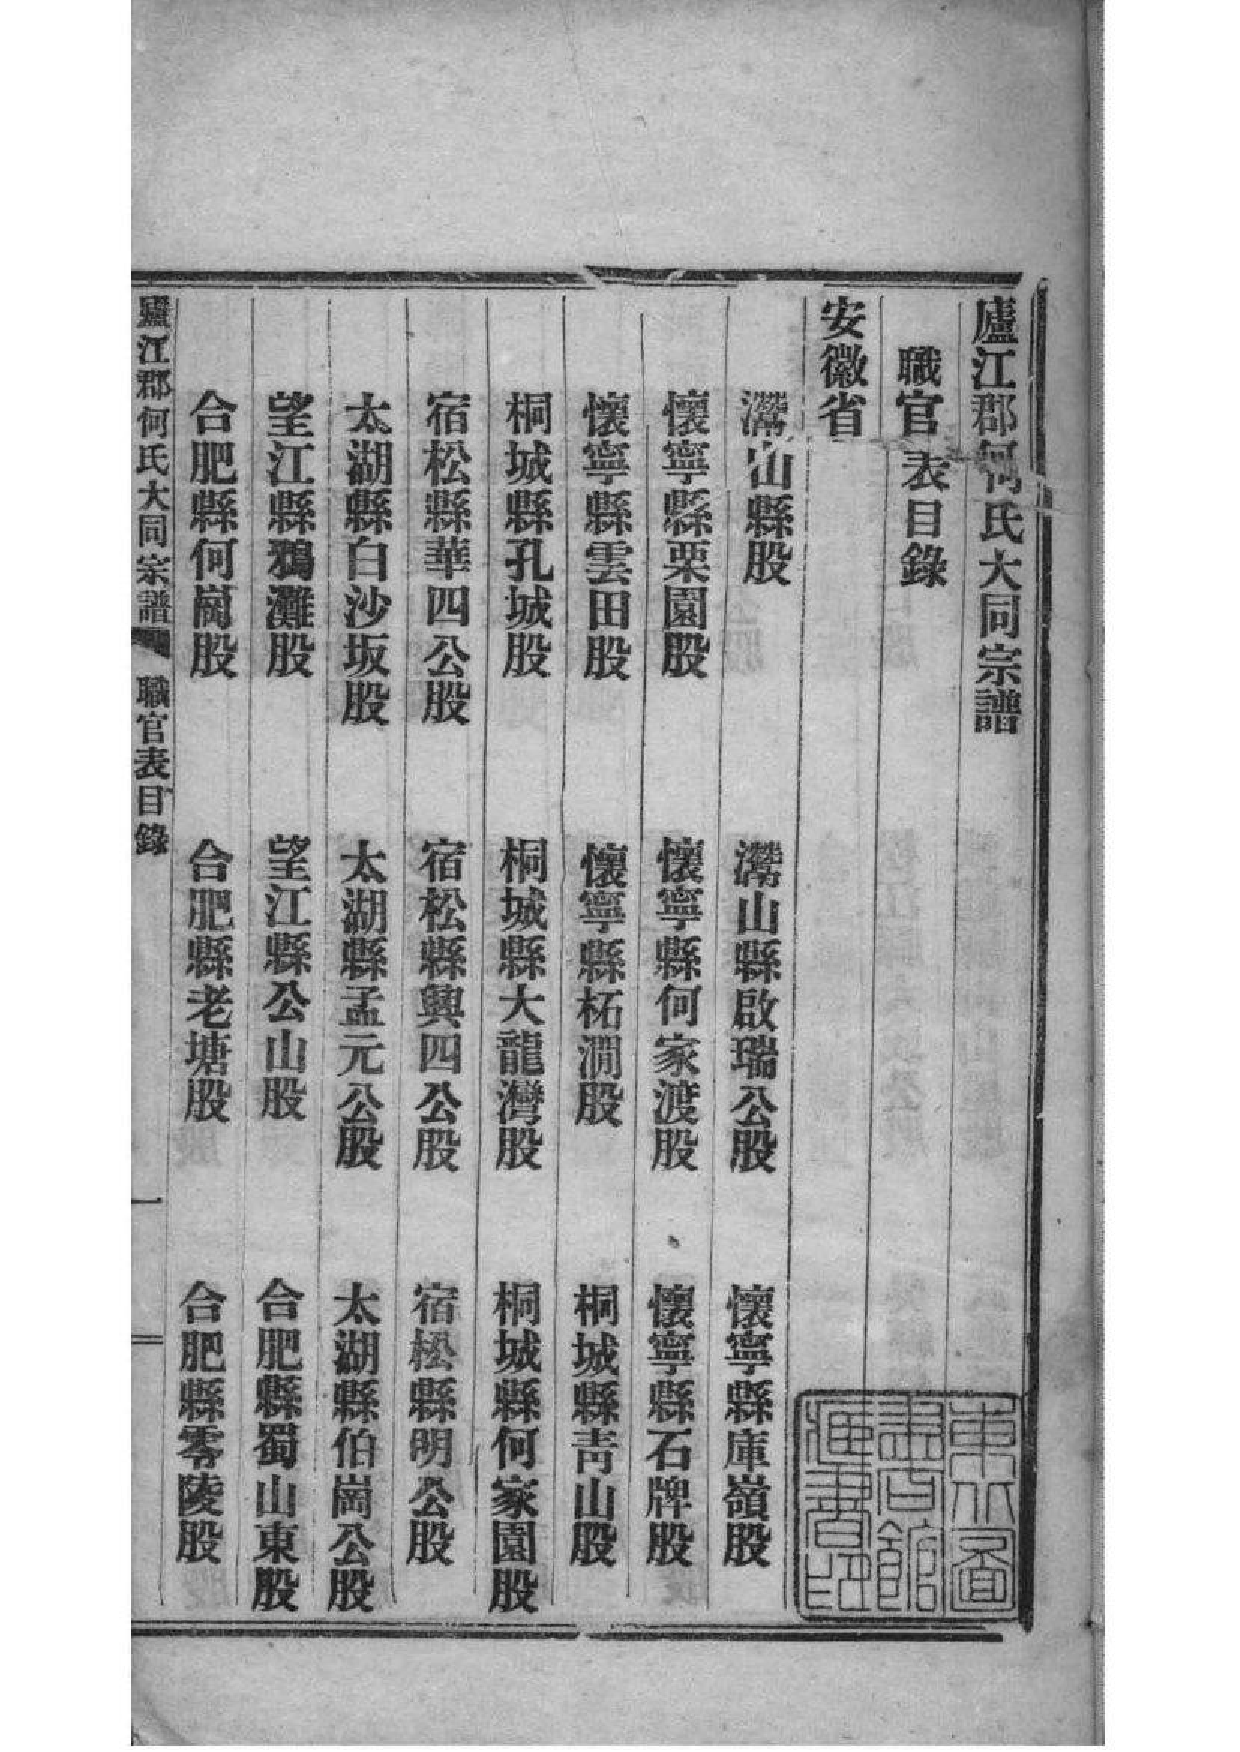 廬江郡何氏大同宗譜
職官表目錄
安徽省
灊山縣股　灊山縣啟瑞公股　懷寧縣庫嶺股
懷寧縣栗園股　懷寧縣何家渡股　懷寧縣石牌股
懷寧縣雲田股　懷寧縣柘澗股　桐城縣青山股
桐城縣孔城股　桐城縣大龍灣股　桐城縣何家園股
宿松縣華四公股　宿松縣興四公股　宿松縣明公股
太湖縣白沙坂股　太湖縣孟元公股　太湖縣伯崗公股
望江縣鴉灘股　望江縣公山股　合肥縣蜀山東股
合肥縣何崗股　合肥縣老塘股　合肥縣零陵股
廬江郡何氏大同宗譜　職官表目錄　一
東方圖書館藏書印